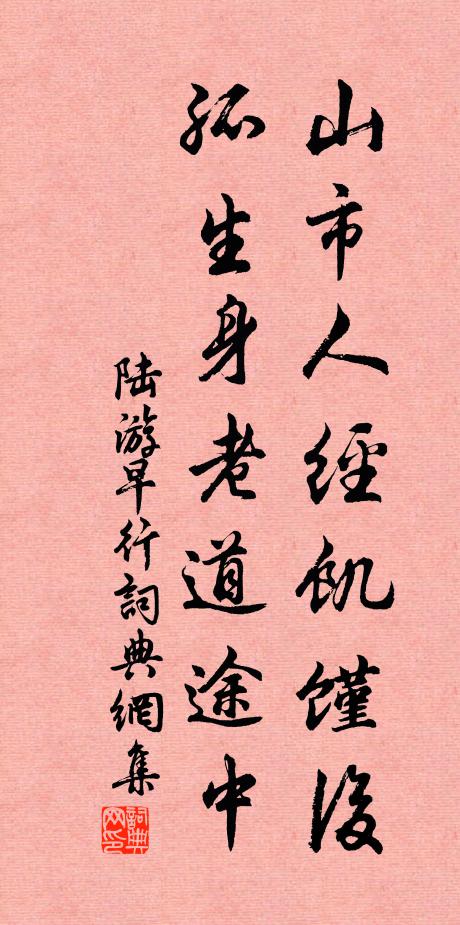 山市人經飢饉後
孤生身老道途中
陆游早行詞典網集
詞典网印